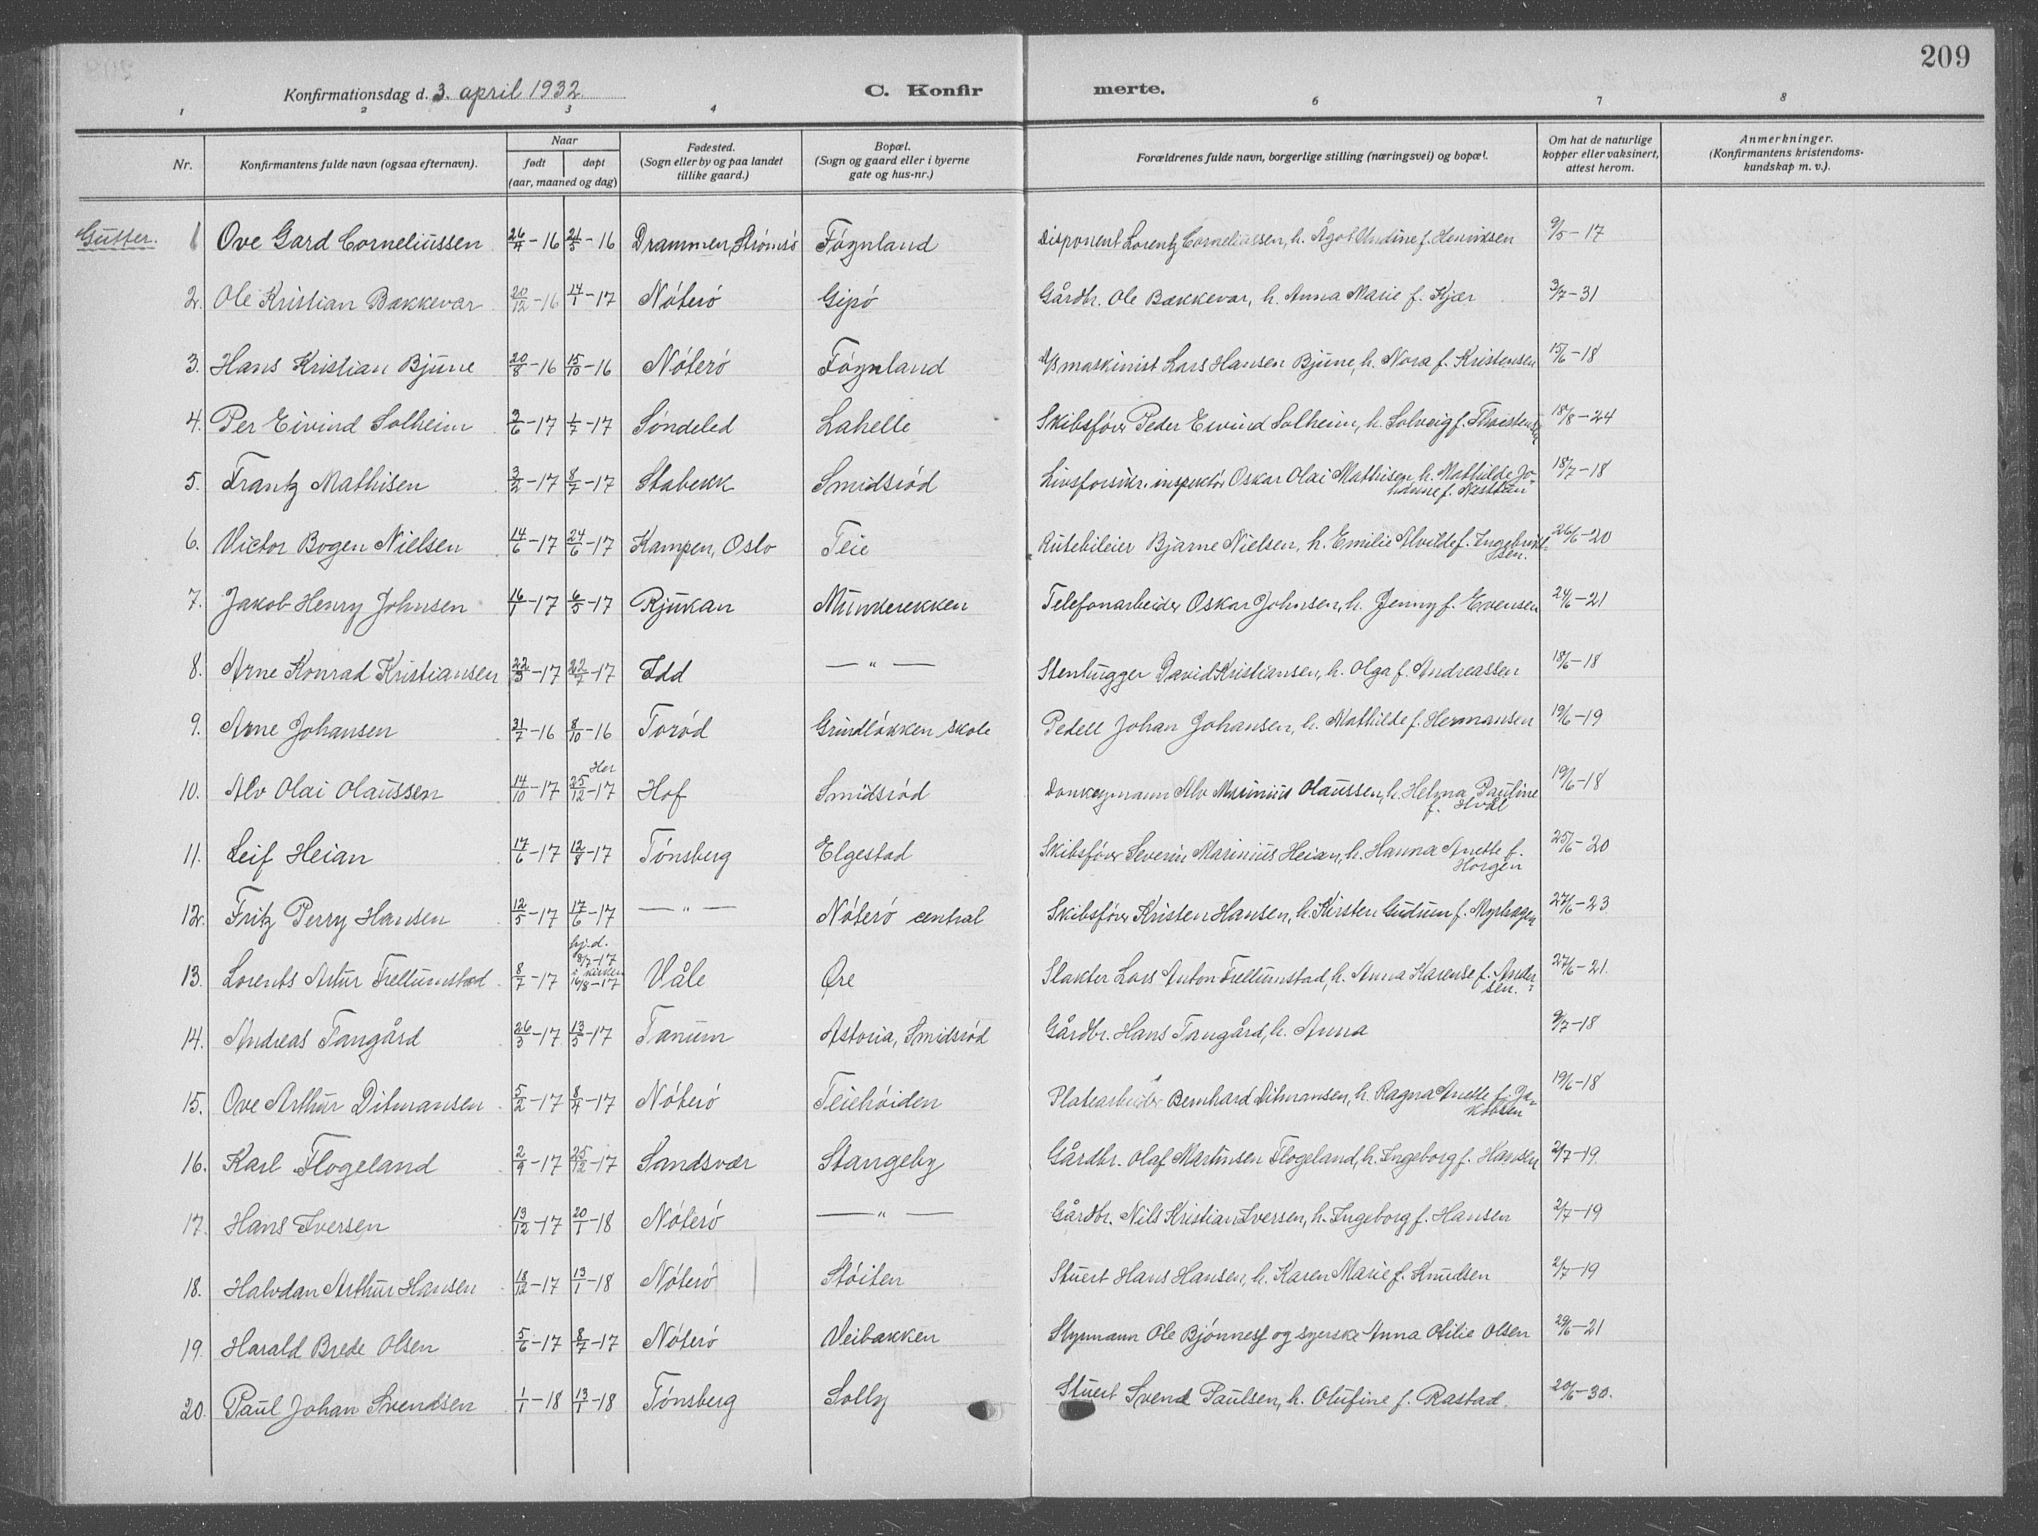 209
Konfirmationsdag d. 3. april 1932. C. Konfir merte.
1 2 3 4 6 7 8
Nr. Konfirmantens fulde navn (ogsaa efternavn). Naar født døpt (aar, maaned og dag) Fødested. (Sogn eller by og paa landet tillike gaard.) Bopæl. (Sogn og gaard eller i byerne gate og hus-nr.) Forældrenes fulde navn, borgerlige stilling (næringsvei) og bopæl. Om hat de naturlige kopper eller vaksinert, attest herom. Anmerkninger. (Konfirmantens kristendomskundskap m. v.).
Gutter. 1 Ove Gard Corneliussen 26/4-16 21/5-16 Drammen, Strømsø Føynland Disponent Lorentz Corneliussen, h. Ågot Undine f. Henriksen 9/5-17
2. Ole Kristian Bækkevar 20/12-16 14/1-17 Nøterø Gipø Gårdbr. Ole Bækkevar, h. Anna Marie f. Kjær 3/7-31
3. Hans Kristian Bjune 20/8-16 15/10-16 Nøterø Føynland maskinist Lars Hansen Bjune, h. Nora f. Kristensen 15/6-18
4. Per Eivind Solheim 3/6-17 1/7-17 Søndeled Lahelle Skibsfører Peder Eivind Solheim, h. Solveig f. 18/8-24
5. Frantz Mathisen 3/2-17 8/7-17 Stabekk Smidsrød Livsforsikr. inspektør Oskar Olai Mathisen, h. Mathilde Johanne f. 18/7-18
6. Victor Bogen Nielsen 14/6-17 24/6-17 Kampen, Oslo Teie Rutebileier Bjarne Nielsen, h. Emilie Alvilde f. Ingebriktsen. 26/6-20
7. Jakob Henry Johnsen 16/1-17 6/5-17 Rjukan Munderekken Telefonarbeider Oskar Johnsen, h. Jenny f. Evensen 24/6-21
8. Arne Konrad Kristiansen 22/5-17 22/7-17 Idd — " — Stenhugger David Kristiansen, h. Olga f. Andreassen 18/6-18
9. Arne Johansen 31/7-16 8/10-16 Torød Grindløkken skole Pedell Johan Johansen, h. Mathilde f. Hermansen 19/6-19
10. Alv Olai Olaussen 14/10-17 Her 25/12-17 Hof Smidsrød Donkeymann Alv Marinius Olaussen, h. Helma Pauline f. Hval 19/6-18
11. Leif Heian 17/6-17 12/8-17 Tønsberg Elgestad Skibsfører Severin Marinius Heian, h. Hanna Anette f. Horgen 25/6-20
12. Fritz Perry Hansen 12/5-17 17/6-17 — " — Nøterø central Skibsfører Kristen Hansen, h. Kirsten Gudrun f. Myrhagen 27/6-23
13. Lorents Artur Trellumstad 8/7-17 hj.d. 8/7-17 i kirken 16/8-17 Våle Øre Slakter Lars Anton Trellumstad, h. Anna Karense f. Andersen. 27/6-21.
14. Andreas Tangård 26/3-17 13/5-17 Tanum Astoria, Smidsrød Gårdbr. Hans Tangård, h. Anna 9/7-18
15. Ove Arthur Ditmansen 5/2-17 8/4-17 Nøterø Teiehøiden Platearbeider Bernhard Ditmansen, h. Ragna Anette f. Jakobsen 19/6-18
16. Karl Flogeland 2/9-17 25/12-17 Sandsvær Stangeby Gårdbr. Olaf Martinsen Flogeland, h. Ingeborg f. Hansen 2/7-19.
17. Hans Iversen 13/12-17 20/1-18 Nøterø — " — Gårdbr. Nils Kristian Iversen, h. Ingeborg f. Hansen 2/7-19
18. Halvdan Arthur Hansen 18/12-17 13/1-18 Nøterø Støiten Stuert Hans Hansen, h. Karen Marie f. Knudsen 2/7-19
19. Harald Brede Olsen 5/6-17 8/7-17 Nøterø Veibakken Styrmann Ole Bjønnes og syerske Anna Otilie Olsen 29/6-21
20. Paul Johan Svendsen 1/1-18 13/1-18 Tønsberg Solby Stuert Svend Paulsen, h. Olufine f. Rastad. 20/6-30.